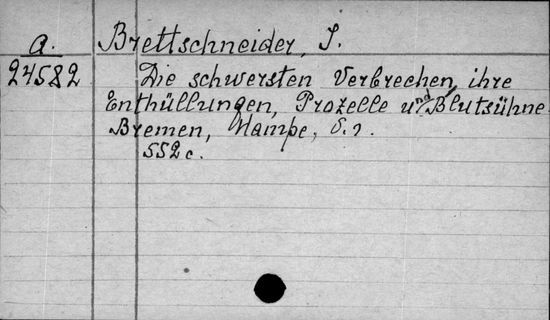 a. Brettschneider, J.
24582. Die schwersten Verbrechen, ihre
Enthüllungen, Prozelle und Blutsühne.
Bremen, Hampe, s. a.
552 c.